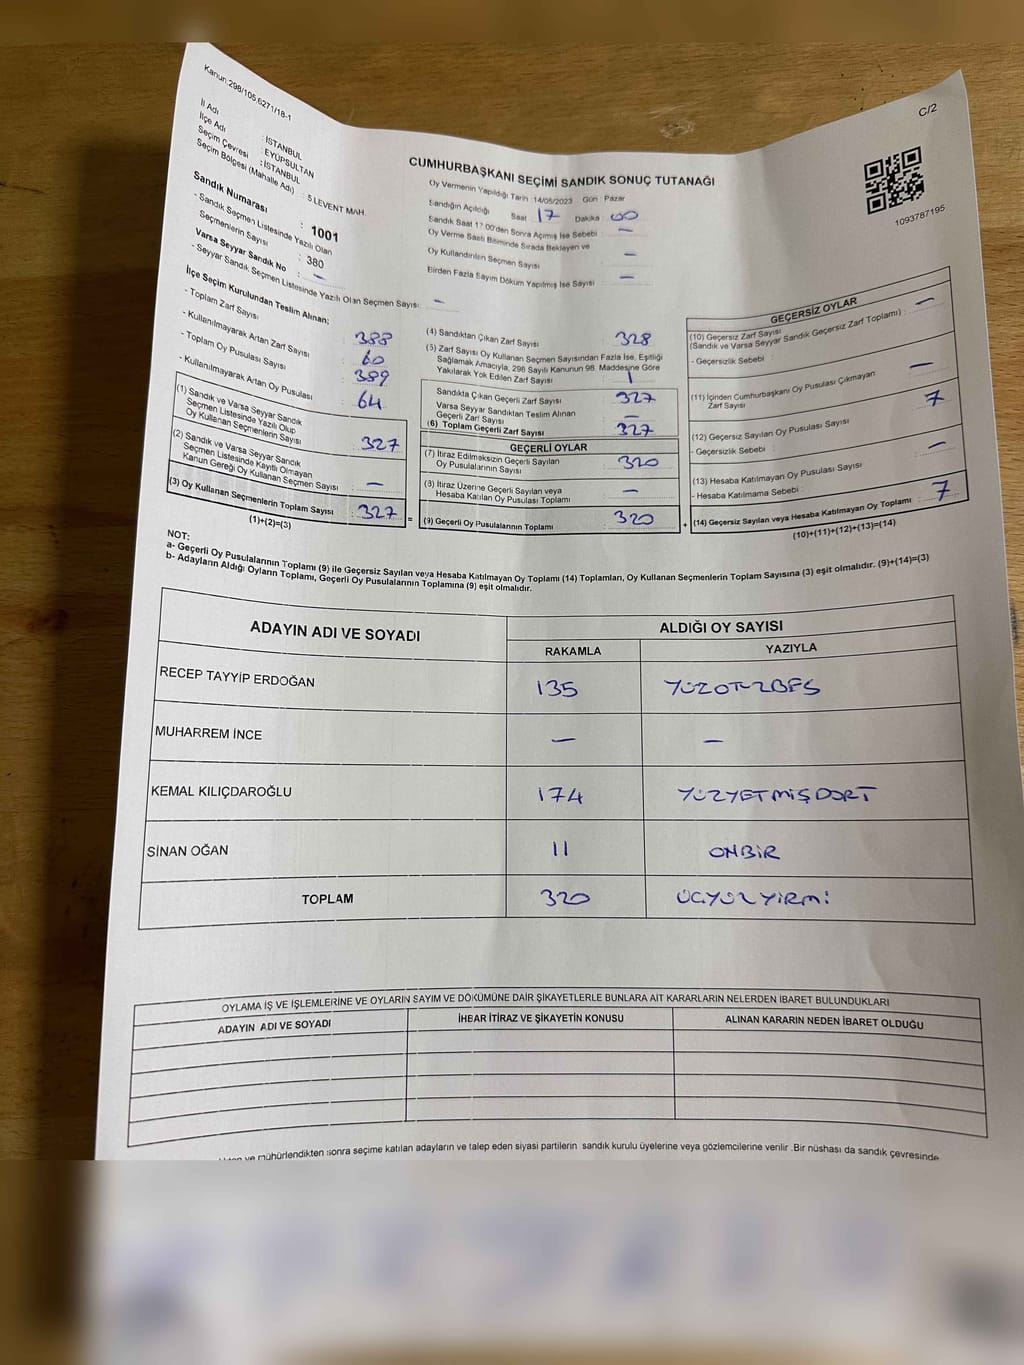 Kanun:298/105,6271/18-1
C/2
İl Adı : İSTANBUL
İlçe Adı : EYÜPSULTAN
Seçim Çevresi : İSTANBUL
Seçim Bölgesi (Mahalle Adı) : 5 LEVENT MAH.
Sandık Numarası : 1001
- Sandık Seçmen Listesinde Yazılı Olan
Seçmenlerin Sayısı : 380
Varsa Seyyar Sandık No : -
- Seyyar Sandık Seçmen Listesinde Yazılı Olan Seçmen Sayısı: -
CUMHURBAŞKANI SEÇİMİ SANDIK SONUÇ TUTANAĞI
Oy Vermenin Yapıldığı Tarih 14/05/2023 Gün : Pazar
Sandığın Açıldığı Saat 17 Dakika 00
Sandık Saat 17.00'den Sonra Açımış İse Sebebi : -
Oy Verme Saati Bitiminde Sırada Bekleyen ve
Oy Kullandırılan Seçmen Sayısı -
Birden Fazla Sayım Döküm Yapılmış İse Sayısı -
1093787195
İlçe Seçim Kurulundan Teslim Alınan;
- Toplam Zarf Sayısı 388
- Kullanılmayarak Artan Zarf Sayısı 60
- Toplam Oy Pusulası Sayısı 389
- Kullanılmayarak Artan Oy Pusulası 64
(1) Sandık ve Varsa Seyyar Sandık
Seçmen Listesinde Yazılı Olup
Oy Kullanan Seçmenlerin Sayısı 327
(2) Sandık ve Varsa Seyyar Sandık
Seçmen Listesinde Kayıtlı Olmayan
Kanun Gereği Oy Kullanan Seçmen Sayısı -
(3) Oy Kullanan Seçmenlerin Toplam Sayısı 327 =
(1)+(2)=(3)
(4) Sandıktan Çıkan Zarf Sayısı 328
(5) Zarf Sayısı Oy Kullanan Seçmen Sayısından Fazla İse, Eşitliği
Sağlamak Amacıyla, 298 Sayılı Kanunun 98. Maddesine Göre
Yakılarak Yok Edilen Zarf Sayısı 1
Sandıkta Çıkan Geçerli Zarf Sayısı 327
Varsa Seyyar Sandıktan Teslim Alınan
Geçerli Zarf Sayısı -
(6) Toplam Geçerli Zarf Sayısı 327
GEÇERLİ OYLAR
(7) İtiraz Edilmeksizin Geçerli Sayılan
Oy Pusulalarının Sayısı 320
(8) İtiraz Üzerine Geçerli Sayılan veya
Hesaba Katılan Oy Pusulası Toplamı -
(9) Geçerli Oy Pusulalarının Toplamı 320 +
GEÇERSİZ OYLAR
(10) Geçersiz Zarf Sayısı
(Sandık ve Varsa Seyyar Sandık Geçersiz Zarf Toplamı) : -
- Geçersizlik Sebebi :
(11) İçinden Cumhurbaşkanı Oy Pusulası Çıkmayan
Zarf Sayısı -
(12) Geçersiz Sayılan Oy Pusulası Sayısı 7
- Geçersizlik Sebebi :
(13) Hesaba Katılmayan Oy Pusulası Sayısı -
- Hesaba Katılmama Sebebi :
(14) Geçersiz Sayılan veya Hesaba Katılmayan Oy Toplamı : 7
(10)+(11)+(12)+(13)=(14)
NOT:
a- Geçerli Oy Pusulalarının Toplamı (9) ile Geçersiz Sayılan veya Hesaba Katılmayan Oy Toplamı (14) Toplamları, Oy Kullanan Seçmenlerin Toplam Sayısına (3) eşit olmalıdır. (9)+(14)=(3)
b- Adayların Aldığı Oyların Toplamı, Geçerli Oy Pusulalarının Toplamına (9) eşit olmalıdır.
ADAYIN ADI VE SOYADI
ALDIĞI OY SAYISI
RAKAMLA YAZIYLA
RECEP TAYYİP ERDOĞAN 135 YÜZOTUZBEŞ
MUHARREM İNCE - -
KEMAL KILIÇDAROĞLU 174 YÜZYETMİŞDÖRT
SİNAN OĞAN 11 ONBİR
TOPLAM 320 ÜÇYÜZYİRMİ
OYLAMA İŞ VE İŞLEMLERİNE VE OYLARIN SAYIM VE DÖKÜMÜNE DAİR ŞİKAYETLERLE BUNLARA AİT KARARLARIN NELERDEN İBARET BULUNDUKLARI
ADAYIN ADI VE SOYADI İHBAR İTİRAZ VE ŞİKAYETİN KONUSU ALINAN KARARIN NEDEN İBARET OLDUĞU
ve mühürlendikten sonra seçime katılan adayların ve talep eden siyasi partilerin sandık kurulu üyelerine veya gözlemcilerine verilir .Bir nüshası da sandık çevresinde